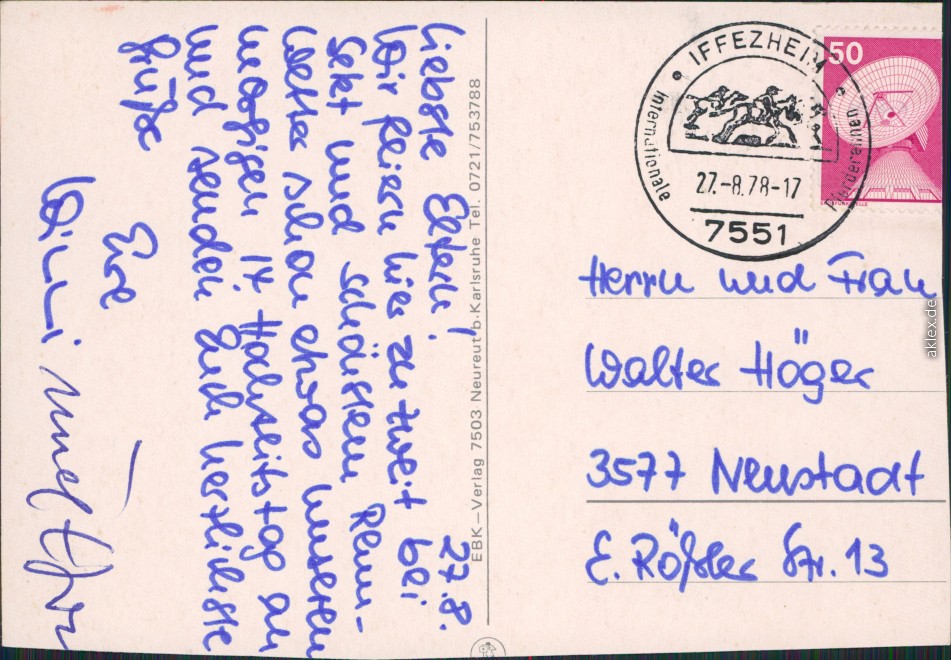 27.8.
Liebste Eltern!
Wir feiern hier zu zweit bei
Sekt und schönstem Renn-
wetter schon etwas unseren
morgigen 14. Hochzeitstag an
und senden Euch herzlichste
Grüße
Eure
EBK – Verlag 7503 Neureut b. Karlsruhe Tel. 0721/753788
IFFEZHEIM
Internationale
Pferderennen
27.-8.78-17
7551
50
Herrn und Frau
Walter Höger
3577 Neustadt
E. Rößler Str. 13
aklex.de